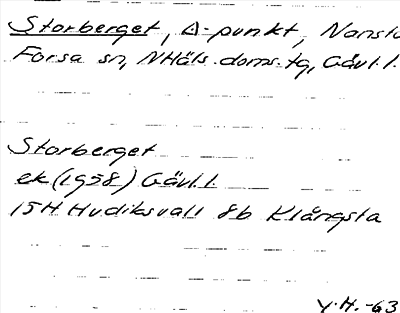 Storberget, Δ-punkt, Nansta
Forsa sn, NHäls. doms. tg, Gävl. l.
Storberget
ek (1958) Gävl. l.
15H Hudiksvall 8b Klångsta
Y.H. -63